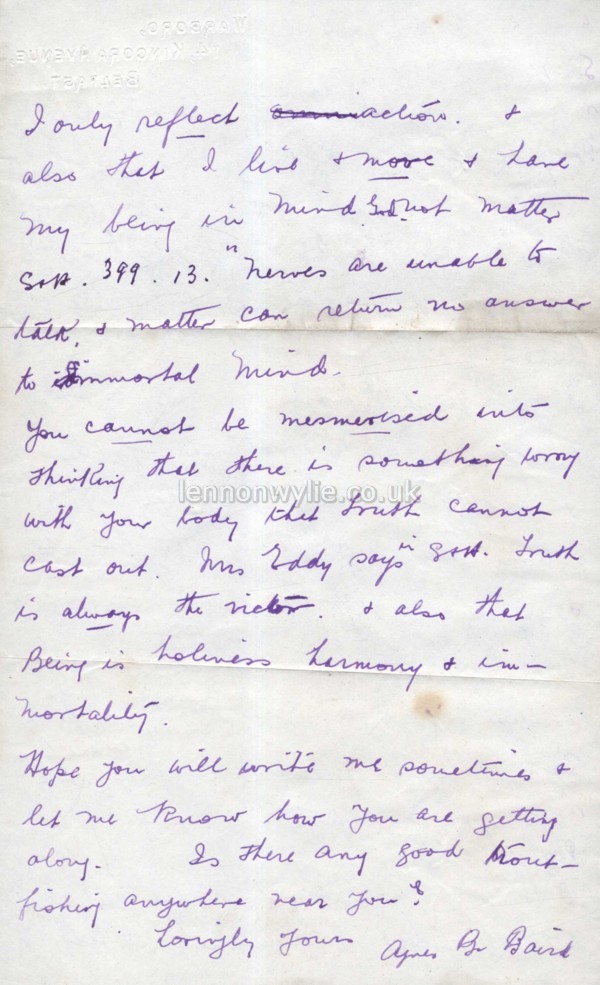 WARBORO,
14, KINCORA AVENUE,
BELFAST.
I only reflect action. &
also that I live & move & have
my being in Mind God not matter
S&H. 399. 13. "Nerves are unable to
talk, & matter can return no answer
to immortal Mind.
You cannot be mesmerised into
thinking that there is something wrong
with your body that Truth cannot
cast out. Mrs Eddy says in S&H. Truth
is always the victor. & also that
Being is holiness harmony & im-
mortality.
Hope you will write me sometimes &
let me know how you are getting
along. Is there any good trout-
fishing anywhere near you?
Lovingly yours Agnes B. Baird
lennonwylie.co.uk